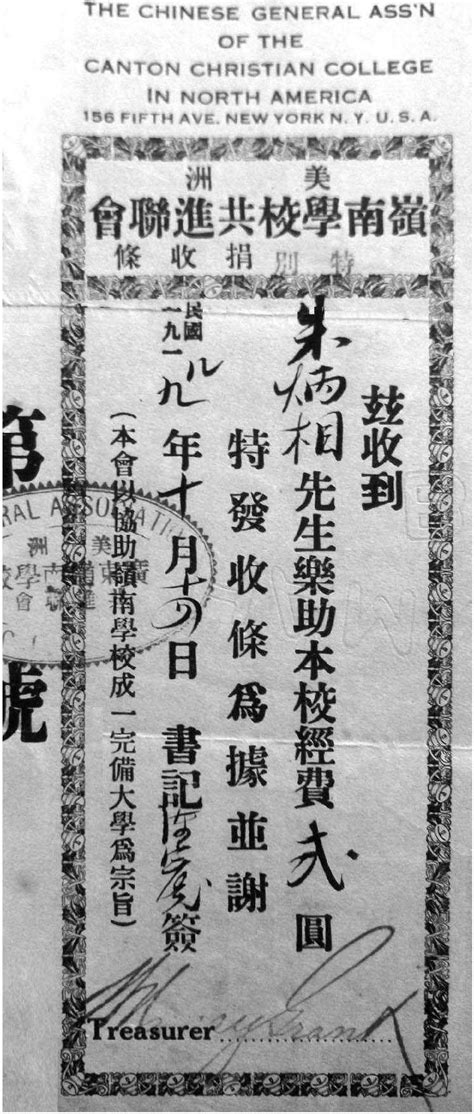 THE CHINESE GENERAL ASS'N
OF THE
CANTON CHRISTIAN COLLEGE
IN NORTH AMERICA
156 FIFTH AVE. NEW YORK N. Y. U. S. A.
美洲
嶺南學校共進聯會
特別捐收條
茲收到
朱炳相先生樂助本校經費弍圓
特發收條爲據並謝
民國八
一九一九年十月十四日 書記 簽
(本會以協助嶺南學校成一完備大學爲宗旨)
第 號
ERAL ASSOCIATI
美洲
廣東嶺南學校
Treasurer Henry Grant